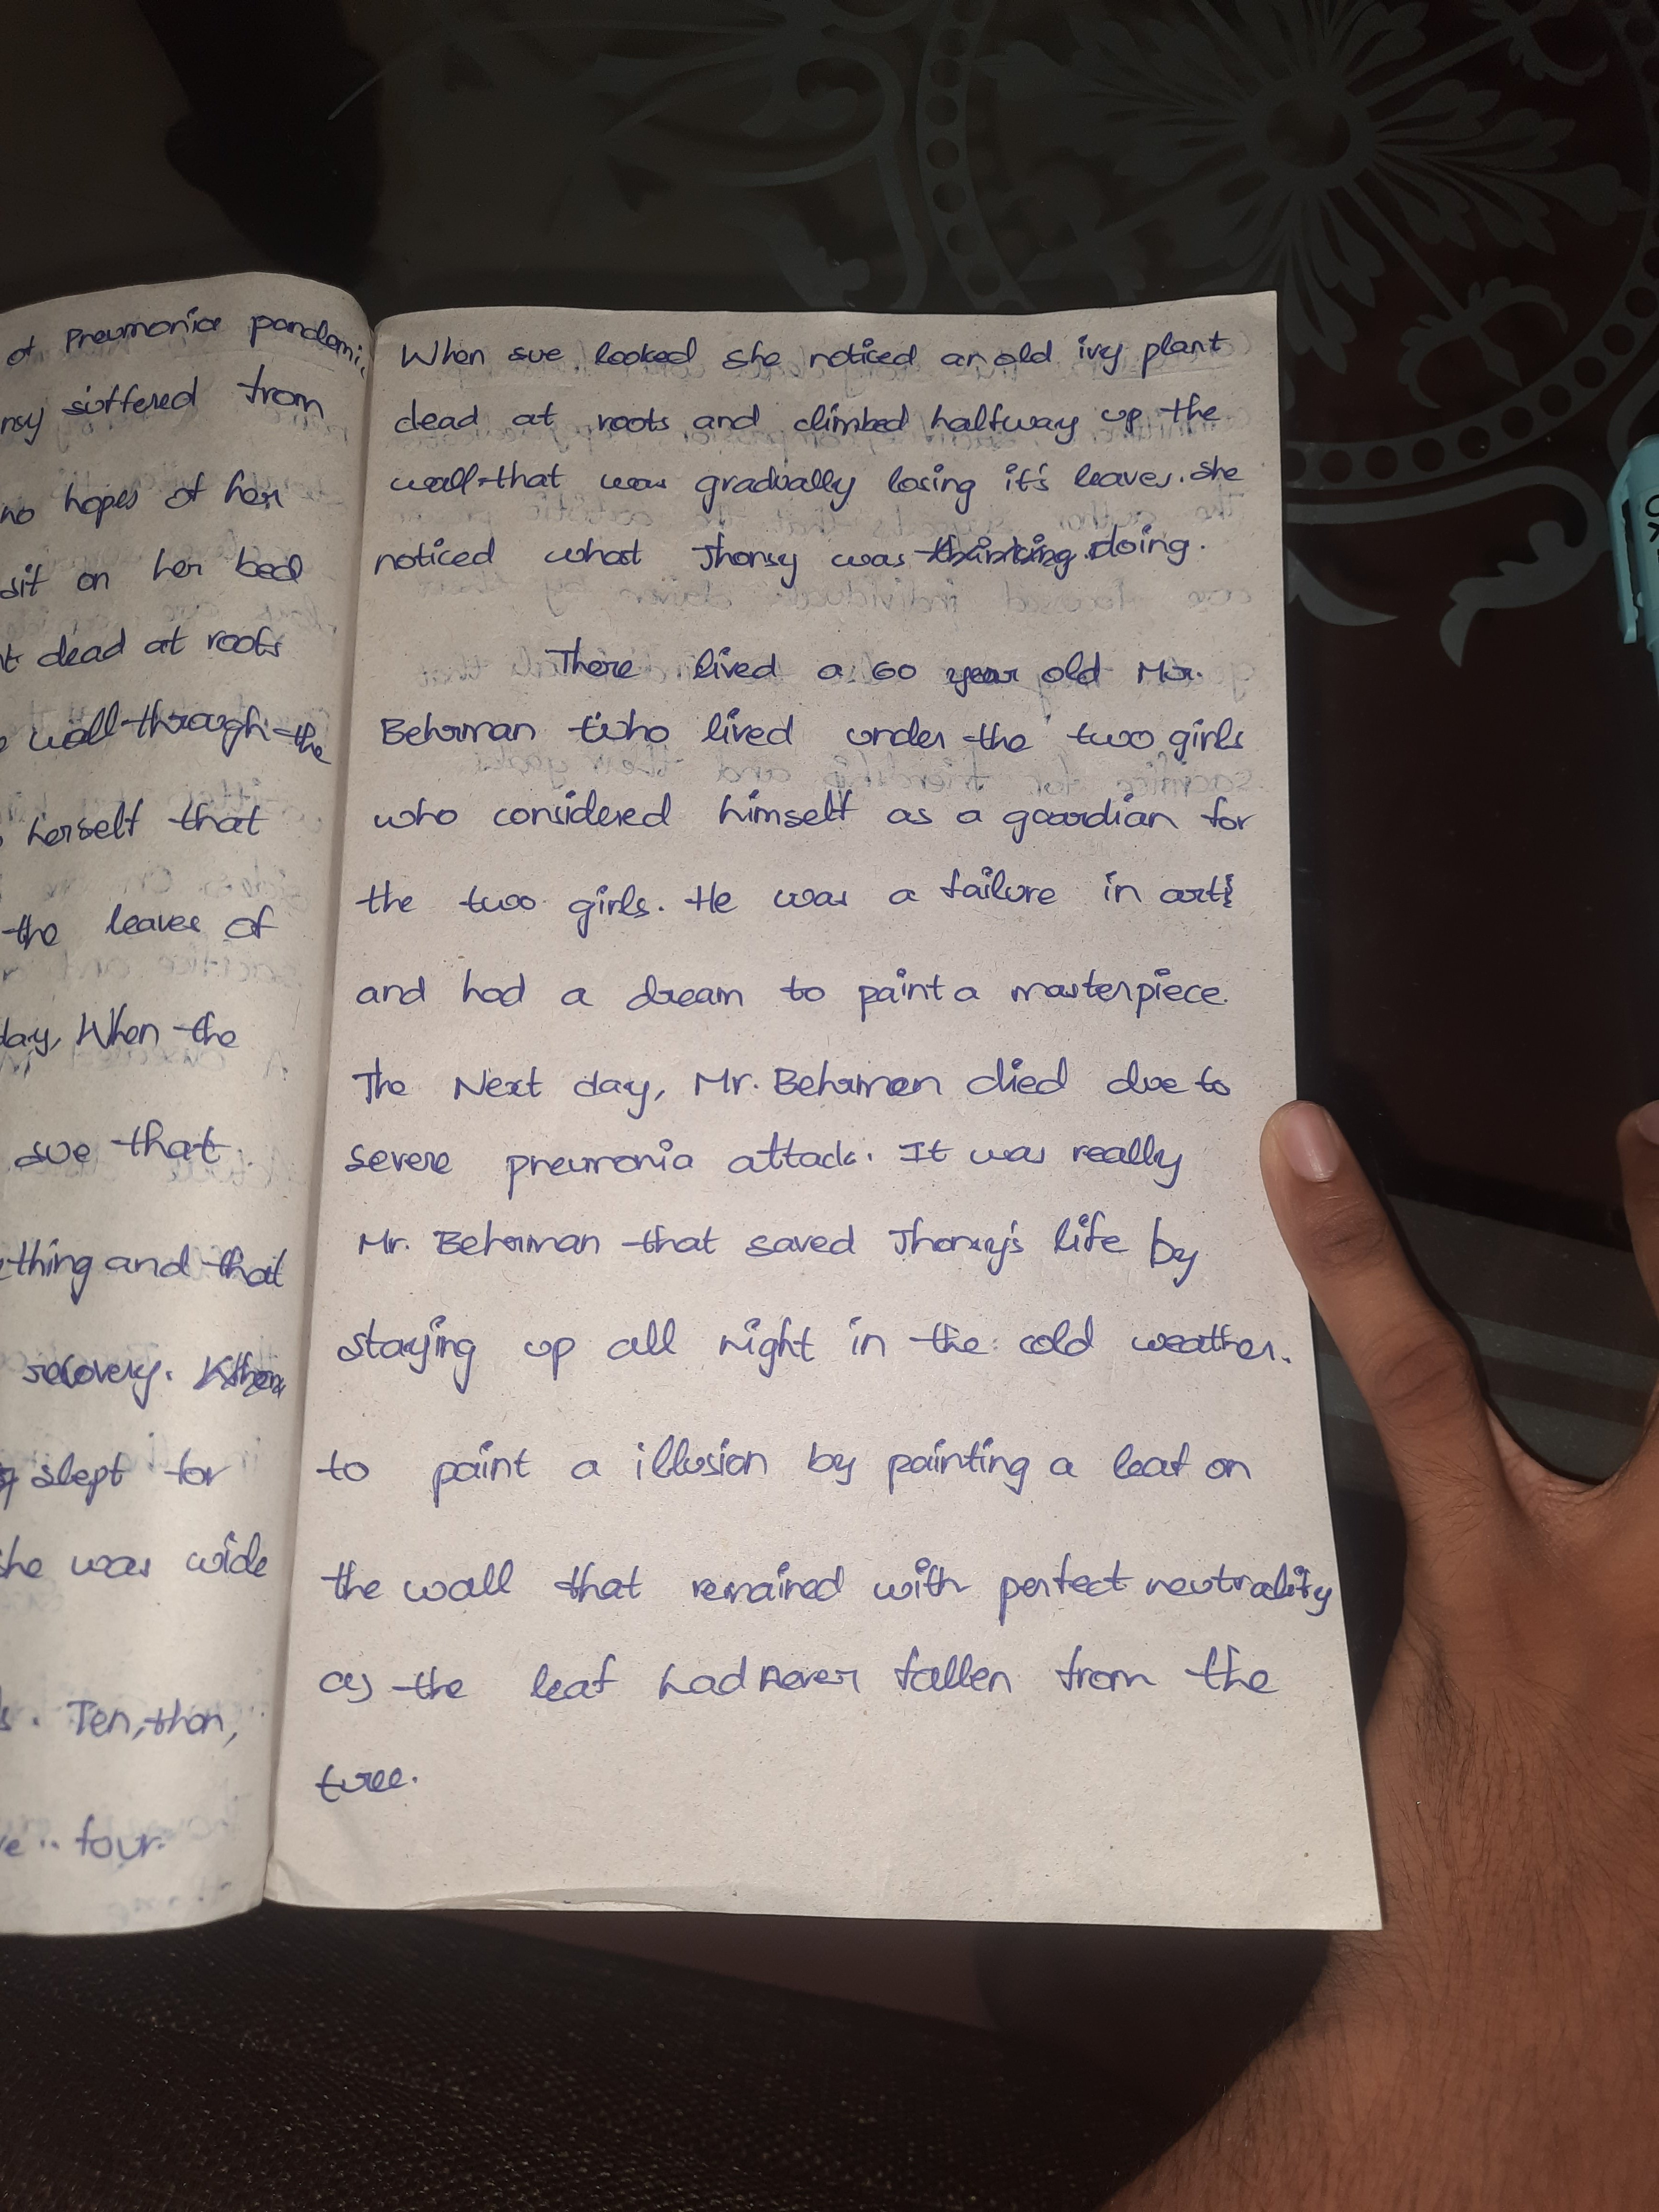 of Pneumonia pandemi
nsy suffered from
no hopes of her
sit on her bed
dead at roots
wall through the
herself that
the leaves of
day, When the
sue that
thing and that
recovery.
slept for
she was wide
Ten, then,
four
When sue looked she noticed an old ivy plant
dead at roots and climbed halfway up the
wall that was gradually losing it's leaves. she
noticed what Jhonsy was thinking doing.
There lived a 60 year old Mr.
Behrman who lived under the two girls
who considered himself as a gaurdian for
the two girls. He was a failure in art
and had a dream to paint a masterpiece.
The Next day, Mr. Behrman died due to
severe pneumonia attack. It was really
Mr. Behrman that saved Jhonsy's life by
staying up all night in the cold weather.
to paint a illusion by painting a leaf on
the wall that remained with perfect neutrality
as the leaf had never fallen from the
tree.